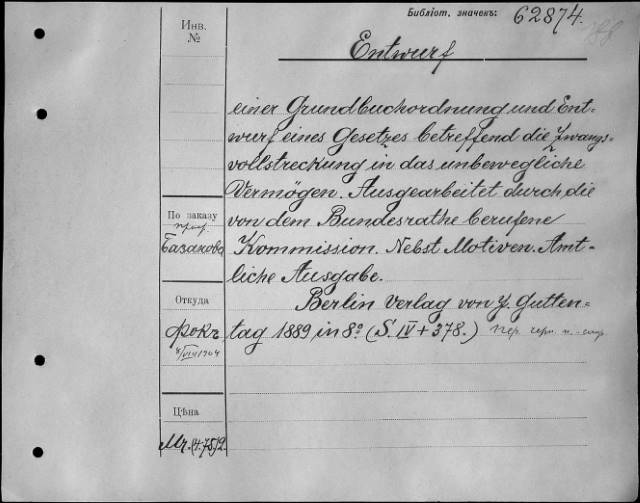 Библіот. значекъ: 62874.
Инв.
№
Entwurf
einer Grundbuchordnung und Ent=
wurf eines Gesetzes betreffend die Zwangs=
vollstreckung in das unbewegliche
Vermögen. Ausgearbeitet durch die
По заказу
проф.
von dem Bundesrathe berufene
Базанова
Kommission. Nebst Motiven. Amt=
liche Ausgabe.
Откуда
Berlin Verlag von J. Gutten=
Фокъ
tag 1889 in 8° (S. IV + 378.)
Цѣна